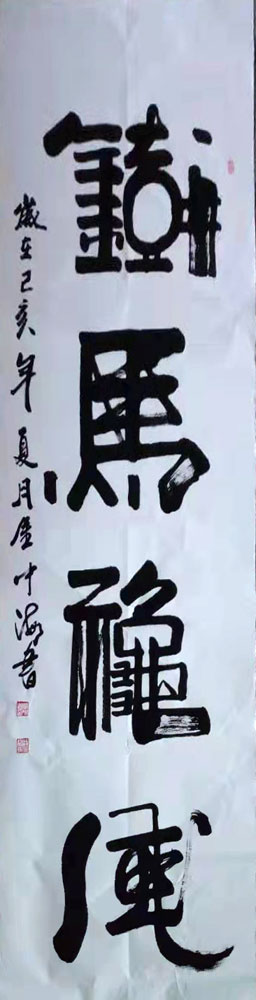 鐵馬龝風
歲在己亥年夏月叶海書